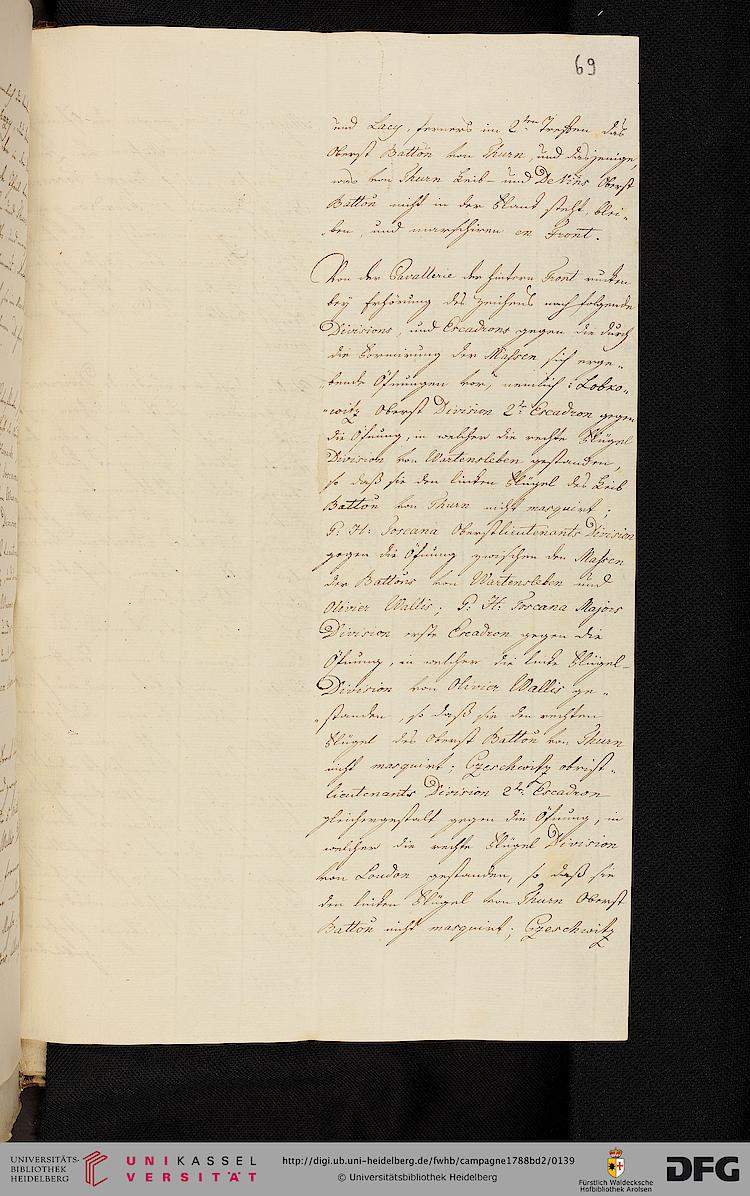 69
und Lacy, ferners im 2ten Treffen das
Oberst Battōn von Thurn, und dasjenige
was von Thurn Leib- und De Vins Oberst
Battōn nicht in der Flank steht, blei„
„ben, und marschiren en Front.
Von der Cavallerie der hintern Front rucken
bey Erhörung des Zeichens nach folgende
Divisions, und Escadrons gegen die durch
die Formirung der Massen sich erge„
„bende Öfnungen vor, nemlich: Lobko„
„witz Oberst Division 2te Escadron gegen
die Öfnung, in welcher die rechte Flügel
Division von Wartensleben gestanden,
so daß sie den linken Flügel des Leib
Battōn von Thurn nicht masquirt;
G: H: Toscana Oberstlieutenants Division
gegen die Öfnung zwischen den Massen
der Battōns von Wartensleben und
Olivier Wallis; G: H: Toscana Majors
Division erste Escadron gegen die
Öfnung, in welcher die linke Flügel-
Division von Olivier Wallis ge„
„standen, so daß sie den rechten
Flügel des Oberst Battōn von Thurn
nicht masquirt; Czeschwitz obrist„
lieutenants Division 2te Escadron
gleichergestalt gegen die Öfnung, in
welcher die rechte Flügel Division
von Loudon gestanden, so daß sie
den linken Flügel von Thurn Oberst
Battōn nicht masquirt; Czeschwitz
UNIVERSITÄTS-
BIBLIOTHEK
HEIDELBERG
UNIKASSEL
VERSITÄT
http://digi.ub.uni-heidelberg.de/fwhb/campagne1788bd2/0139
© Universitätsbibliothek Heidelberg
Fürstlich Waldecksche
Hofbibliothek Arolsen
DFG